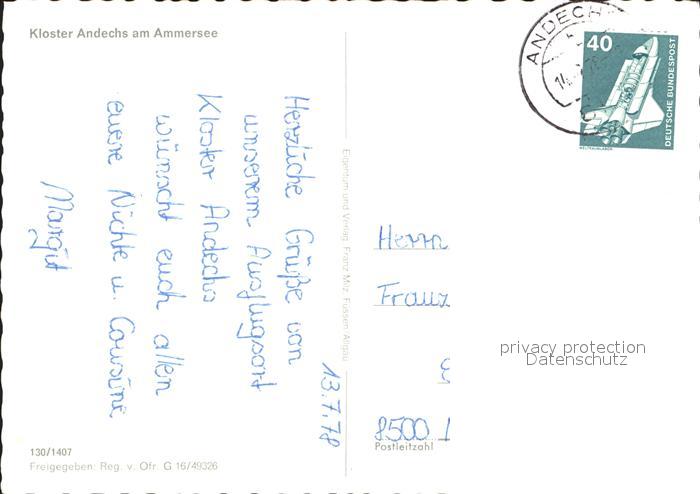 Kloster Andechs am Ammersee
ANDECH
40
DEUTSCHE BUNDESPOST
WELTRAUMLABOR
13.7.78
Herzliche Grüße von
unserem Ausflugsort
Kloster Andechs
wünscht euch allen
euere Nichte u. Cousine
Margit
Eigentum und Verlag Franz Milz, Füssen-Allgäu
Herrn
Franz
8500
Postleitzahl
privacy protection
Datenschutz
130/1407
Freigegeben: Reg. v. Ofr. G 16/49326